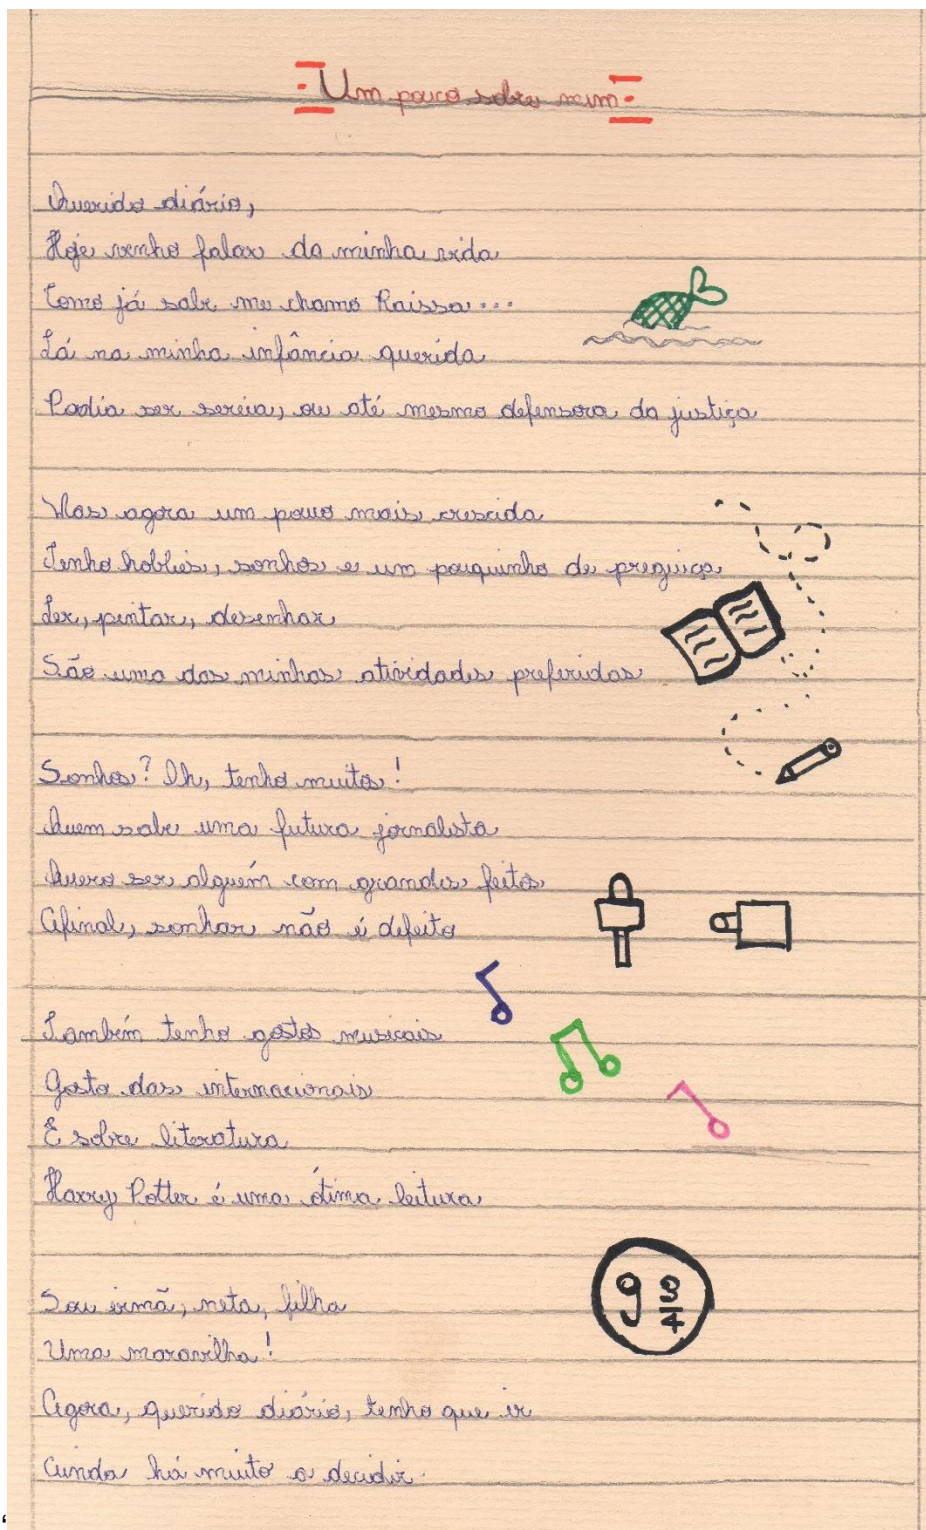 Um pouco sobre mim
Querido diário,
Hoje venho falar da minha vida
Como já sabe me chamo Raissa...
Lá na minha infância querida
Podia ser sereia, ou até mesmo defensora da justiça
Mas agora um pouco mais crescida
Tenho hobbies, sonhos e um pouquinho de preguiça
Ler, pintar, desenhar
São uma das minhas atividades preferidas
Sonhos? Ih, tenho muitos!
Quem sabe uma futura jornalista
Quero ser alguém com grandes feitos
Afinal, sonhar não é defeito
Também tenho gostos musicais
Gosto das internacionais
E sobre literatura
Harry Potter é uma ótima leitura
9 3/4
Sou irmã, neta, filha
Uma maravilha!
Agora, querido diário, tenho que ir
Ainda há muito a decidir.